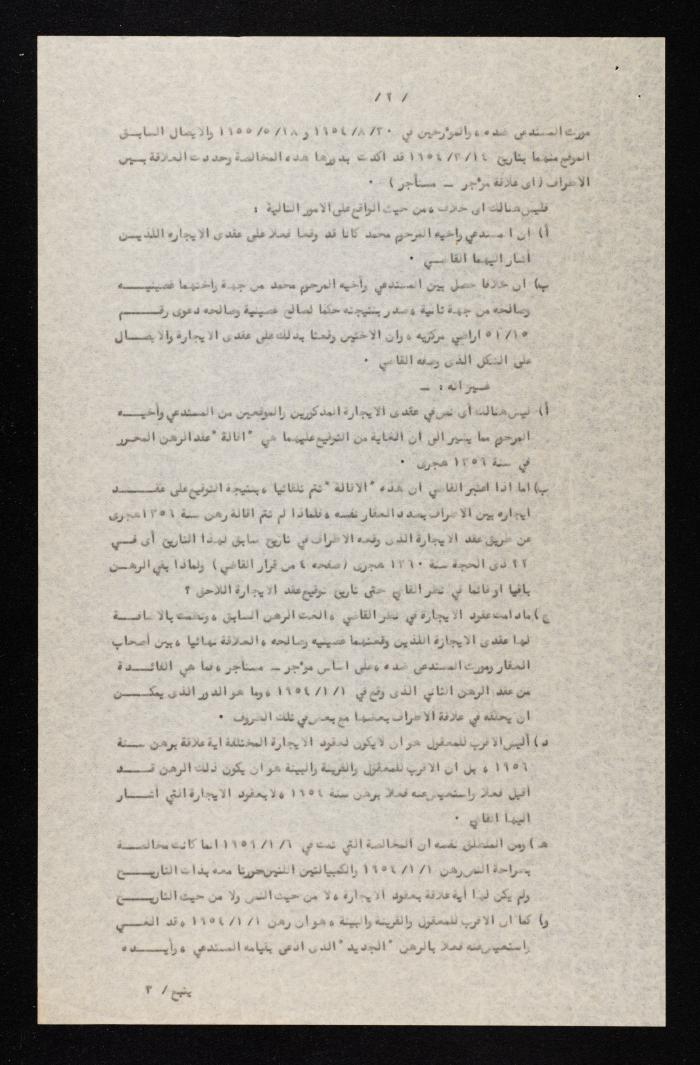 / ٢ /
مورث المستدعى ضده ، والمؤرخين في ٢٠/ ٨/ ١٩٥٤ و ١٨/ ٥/ ١٩٥٥ والايصال السابق
الموقع منهما بتاريخ ١٩٥٤/٢/١٤ قد اكدت بدورها هذه المخالصة وحددت العلاقة بين
الاطراف (اى علاقة مؤجر - مستأجر ) .
فليس هنالك اى خلاف ، من حيث الواقع على الامور التالية :
أ) ان المستدعي وأخيه المرحوم محمد كانا قد وقعا فعلا على عقدى الايجاره اللذيـن
أشار اليهما القاضي .
ب) ان خلافا حصل بين المستدعي وأخيه المرحوم محمد من جهة واختهما غصينيـه
وصالحه من جهة ثانية ، صدر بنتيجته حكما لصالح غصينية وصالحه دعوى رقـم
٥١/١٥ اراضي مركزيه ، وان الاختين وقعتا بذلك على عقدى الايجارة والايصـال
على الشكل الذى وصفه القاضي .
غـير انه : -
أ) ليس هنالك أى نص في عقدى الايجارة المذكورين والموقعين من المستدعي وأخيـه
المرحوم مما يشير الى ان الغاية من التوقيع عليهما هي "اقالة" عقد الرهن المحـرر
في سنة ١٣٥٦ هجرى .
ب) اما اذا اعتبر القاضي ان هذه "الاقالة" تتم تلقائيا ، بنتيجة التوقيع على عقـد
ايجاره بين الاطراف بصدد العقار نفسه ، فلماذا لم تتم اقالة رهن سنة ١٣٥٦ هجرى
عن طريق عقد الايجارة الذى وقعه الاطراف في تاريخ سابق لهذا التاريخ أى فـي
٢٢ ذى الحجة سنة ١٣٦٠ هجرى (صفحه ٤ من قرار القاضي ) ولماذا بقي الرهـن
باقيا او قائما في نظر القاضي حتى تاريخ توقيع عقد الايجارة اللاحق ؟
ج) ما دامت عقود الايجارة في نظر القاضي ، الغت الرهن السابق ، ونظمت بالاضافـة
لها عقدى الايجارة اللذين وقعتهما غصينيه وصالحه ، العلاقة نهائيا ، بين أصحاب
العقار ومورث المستدعى ضده ، على اساس مؤجر - مستأجر ، فما هي الفائـدة
من عقد الرهن الثاني الذى وقع في ١٩٥٤/١/١ ، وما هو الدور الذى يمكـن
ان يحققه في علاقة الاطراف بعضها مع بعض في تلك الظروف .
د) أليس الاقرب للمعقول هو ان لا يكون لعقود الايجارة المختلفة اية علاقة برهن سنة
١٩٥٦ ، بل ان الاقرب للمعقول والقرينة والبينة هو ان يكون ذلك الرهن قـد
أقيل فعلا واستعيض عنه فعلا برهن سنة ١٩٥٤ ، لا بعقود الايجارة التي أشـار
اليها القاضي .
هـ) ومن المنطلق نفسه ان المخالصة التي تمت في ١٩٥٦/١/٦ انما كانت مخالصـة
بصراحة النص رهن ١٩٥٤/١/١ والكمبيالتين اللتين حررتا معه بذات التاريـخ
ولم يكن لها أية علاقة بعقود الايجارة ، لا من حيث النص ولا من حيث التاريـخ
و) كما ان الاقرب للمعقول والقرينة والبينة ، هو ان رهن ١٩٥٤/١/١ ، قد الغـي
واستعيض عنه فعلا بالرهن "الجديد" الذى ادعى بقيامه المستدعي ، وأيـده
يتبع / ٣